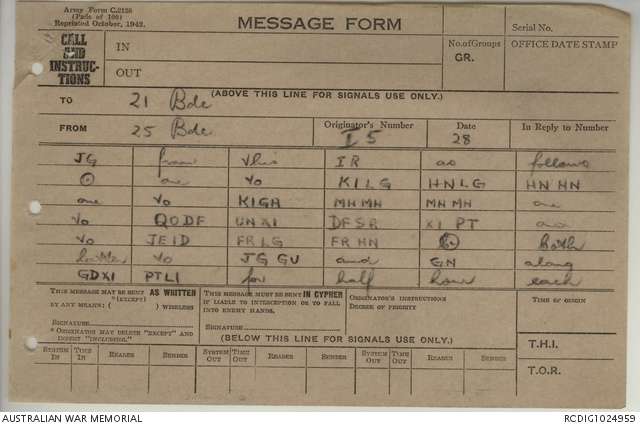 Army Form C.2128
(Pads of 100)
Reprinted October, 1942.
MESSAGE FORM
Serial No.
CALL
AND
INSTRUC-
TIONS
IN
OUT
No. of Groups
GR.
OFFICE DATE STAMP
(ABOVE THIS LINE FOR SIGNALS USE ONLY.)
TO 21 Bde
FROM 25 Bde
Originator's Number
I 5
Date
28
In Reply to Number
JG from this IR as follows
⊙ one to KILG HNLG HN HN
one to KIGH MH MH MH MH one
to QODF UNXI DFSR XI PT and
to JEID FRLG FR HN ⊙ Both
to JG GU and GN along
GDXI PTLI for half hour each
THIS MESSAGE MAY BE SENT AS WRITTEN
(EXCEPT)
BY ANY MEANS: ( ) WIRELESS
SIGNATURE
* ORIGINATOR MAY DELETE "EXCEPT" AND
INSERT "INCLUDING."
THIS MESSAGE MUST BE SENT IN CYPHER
IF LIABLE TO INTERCEPTION OR TO FALL
INTO ENEMY HANDS.
SIGNATURE
ORIGINATOR'S INSTRUCTIONS
DEGREE OF PRIORITY
TIME OF ORIGIN
(BELOW THIS LINE FOR SIGNALS USE ONLY.)
SYSTEM IN TIME IN READER SENDER SYSTEM OUT TIME OUT READER SENDER SYSTEM OUT TIME OUT READER SENDER
T.H.I.
T.O.R.
AUSTRALIAN WAR MEMORIAL
RCDIG1024959